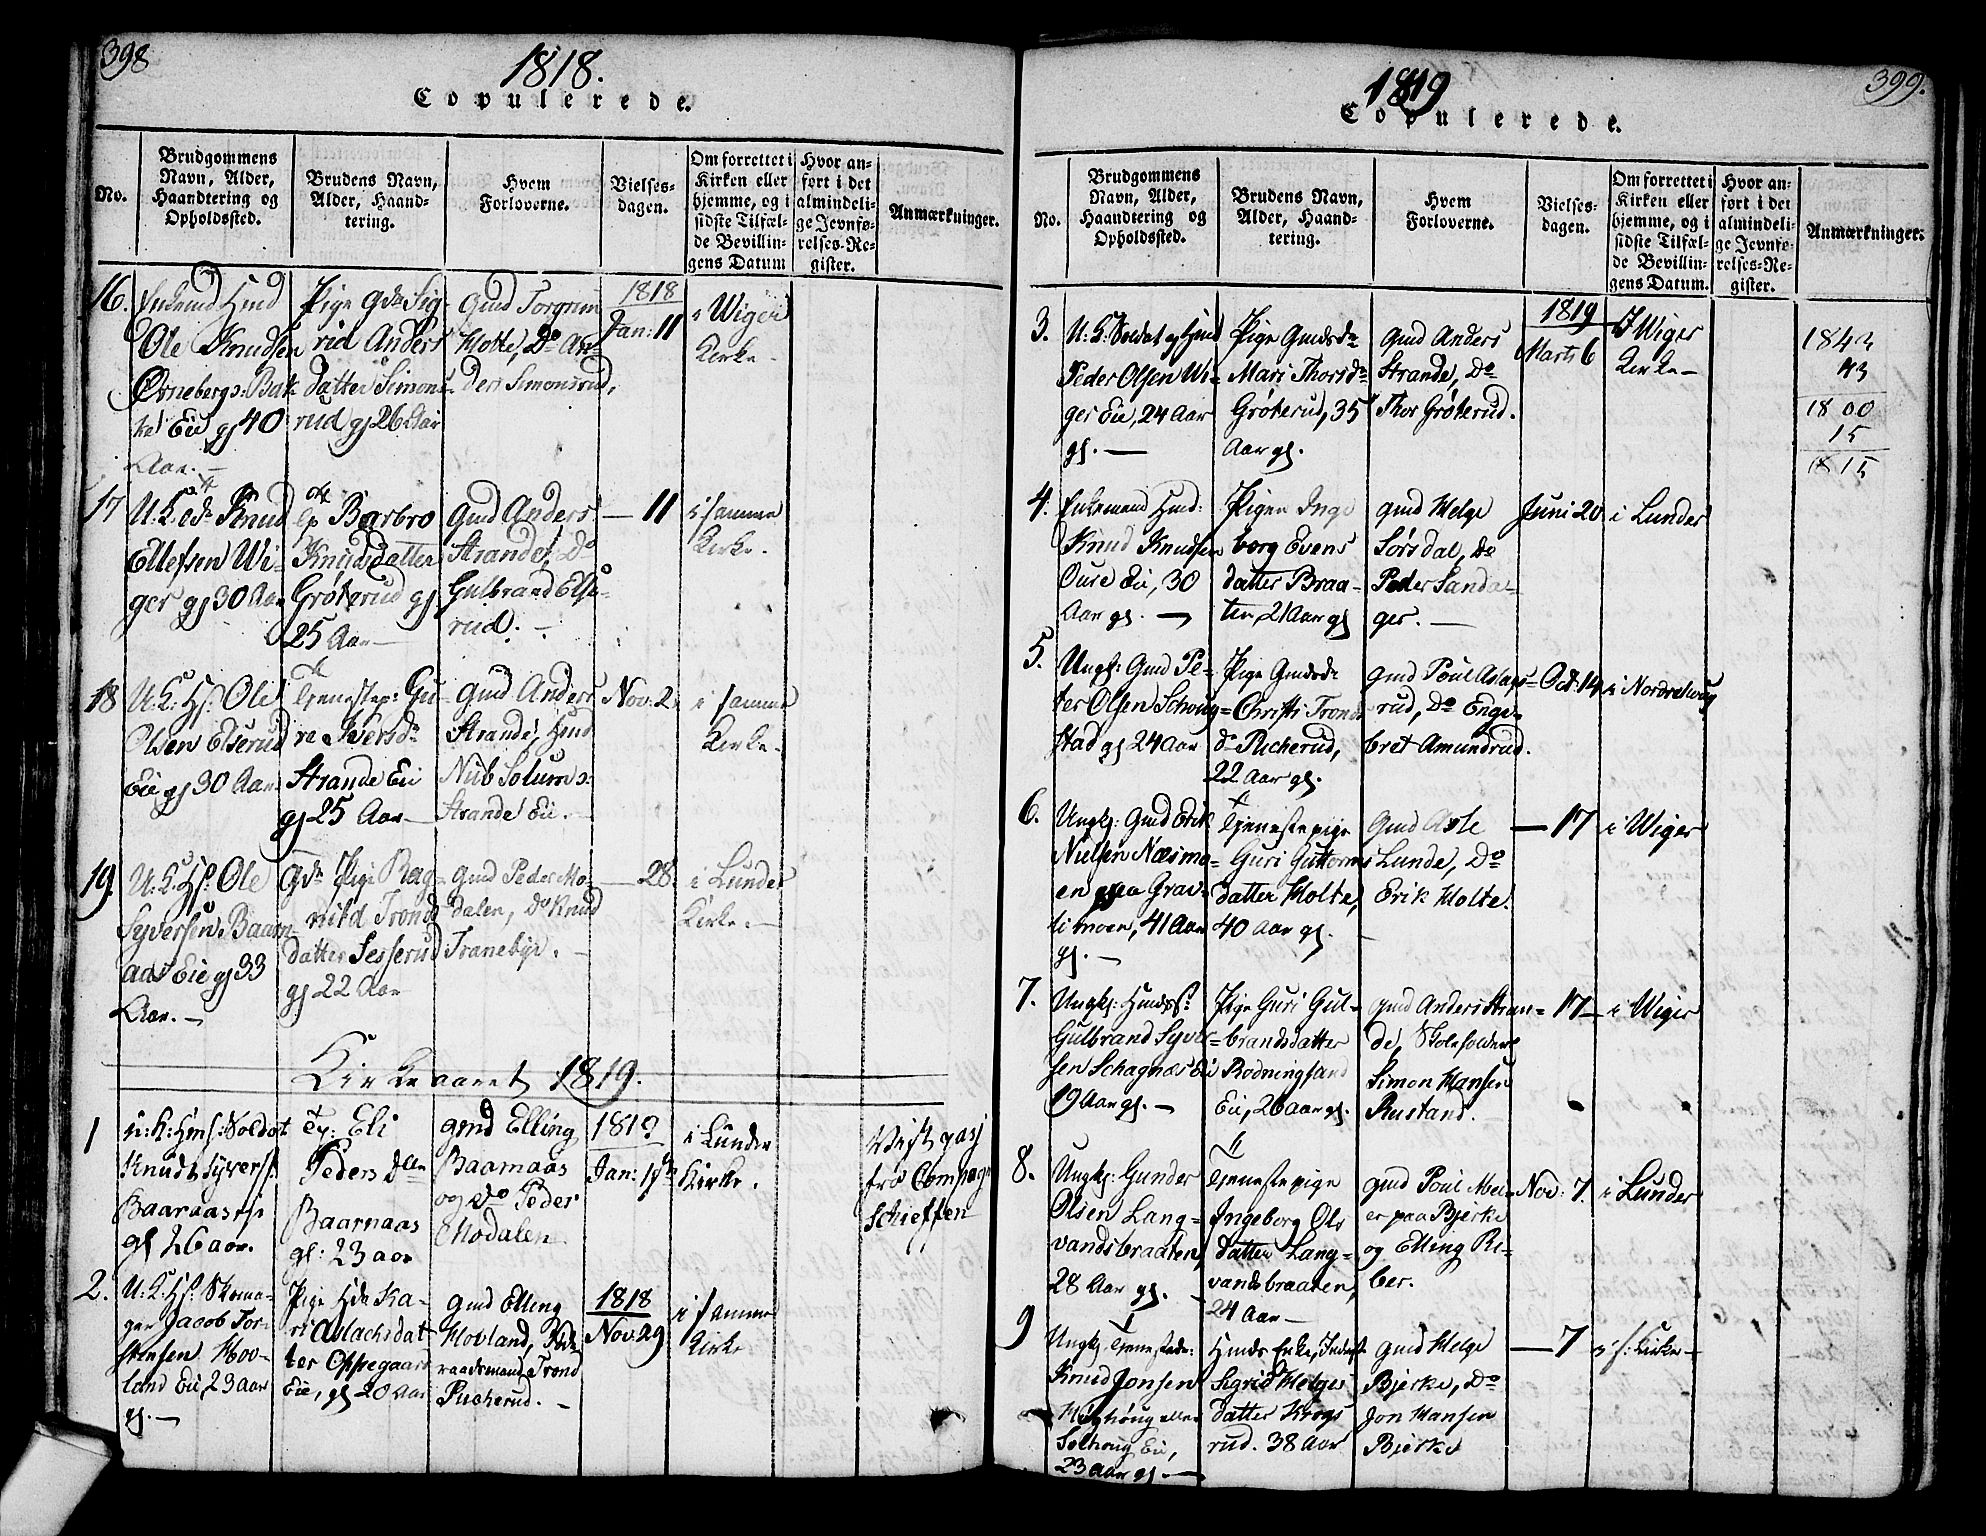 398
1818.
Copulerede.
No.
Brudgommens
Navn, Alder,
Haandtering og
Opholdssted.
Brudens Navn,
Alder, Haand-
tering.
Hvem
Forloverne.
Vielses-
dagen.
Om forrettet i
Kirken eller
hjemme, og i
sidste Tilfæl-
de Bevillin-
gens Datum
Hvor an-
ført i det
almindeli-
ge Jevnfø-
relses-Re-
gister.
Anmærkninger.
16.
Enkemd Hmd
Ole Knudsen
Ornebergs: Bak
ke Eie gl 40
Aar. —
Pige Sig-
rid Anders
datter Simons-
rud gl 26 Aar
Gmd Torgrim
Holte, Do An-
ders Simonsrud,
1818
Jan: 11
i Wiger
Kirke -
17
U. K. Knud
Ellefsen Wi-
ger gl 30 Aar
Barbro
Knudsdatter
Grøterud gl
25 Aar —
Gmd Anders
Strande, Do
Gulbrand Else-
rud. —
— 11
i samme
Kirke.
18
U. K. Hs. Ole
Olsen Elserud
Eie gl 30 Aar
Tjenestep: Gu-
re Iversdr
Strande Eie
gl 25 Aar —
Gmd Anders
Strande, Hmd
Nub Solum
Strande Eie. —
Nov: 2.
i samme
Kirke.
19.
U. K. Hs. Ole
Syversen Baarn-
aas Eie gl 33
Aar. —
Pige Rag-
nild Tronds
datter Sesserud
gl 22 Aar
Gmd Peder Mo-
dalen, Do Knud
Tranebye. —
— 28.
i Lunder
Kirke. —
Kirkeaaret 1819.
1
Soldat
Knud Syvers:
Baarnaas
gl 26 aar.
Ty: Eli
Peders
Baarnaas
gl: 23 aar
gmd Elling
Baarnaas
og do Peder
Modalen
1819
Jan: 1ste
i Lunder
Kirke.
fra Compag
2.
U. K. Hs. Skoma-
ger Jacob Tor-
stensen Hov-
land Eie, 23 aar
gl. —
Pige Hds Ka-
ri Aslachsdat-
ter Oppegaard
Eie, gl 20 Aar
Gmd Elling
Hovland,
raadsmand Trond
Pucherud. —
1818
Nov: 29
i samme
Kirke
399.
1819
Copulerede.
No.
Brudgommens
Navn, Alder,
Haandtering og
Opholdssted.
Brudens Navn,
Alder, Haand-
tering.
Hvem
Forloverne.
Vielses-
dagen.
Om forrettet i
Kirken eller
hjemme, og i
sidste Tilfæl-
de Bevillin-
gens Datum.
Hvor an-
ført i det
almindeli-
ge Jevnfø-
relses-Re-
gister.
Anmærkninger.
3.
U. K: Soldat og Hmd
Peder Olsen Wi-
ger Eie, 24 Aar
gl. —
Pige Gmdsdr
Mari Thorsdr
Grøterud, 35
Aar gl.
Gmd Anders
Strande, Do
Thor Grøterud.
1819
Marts 6
I Wiger
Kirke —
1843
43
1800
15
1815
4.
Enkemand Hmd:
Knud Knudsen
Oure Eie, 30
Aar gl. —
Pigen Inge
borg Evens
datter Braa-
ten, 21 Aar gl
Gmd Helge
Sørsdal, Do
Peder Sanda-
ger. —
Juni 20
i Lunder
5.
Ungk: Gmd Pe-
ter Olsen Schoug-
stad gl 24 Aar
Pige Gmdsdr
Christi Tronds
dr Pucherud,
22 Aar gl.
Gmd Poul Aslags-
rud, Do Enge-
bret Amundrud.
Oct: 14
i Norderhoug
6.
Ungk: Gmd Erik
Nielsen Næsmo-
en paa Grav-
li moen, 41 Aar
gl. —
Tjenestepige
Guri Guttorms
datter Holte,
40 Aar gl. —
Gmd Asle
Lunde, Do
Erik Holte.
— 17
i Wiger
7.
Ungk: Hmdss:
Gulbrand Syver-
sen Schagnæs Eie
19 Aar gl. —
Pige Guri Gul-
brandsdatter
Rodningsand
Eie, 26 aar gl.
Gmd Anders Stran-
de, Skoleholder
Simon Hansen
Rustand.
17 —
i Wiger
8.
Ungk: Gunder
Olsen Lang-
vandsbraaten,
28 Aar gl. —
Tjenestepige
Ingeborg Ols
datter Lang-
vandsbraaten,
24 Aar —
Gmd Poul Mei-
er paa Bjerke
og Elling Ri-
ber.
Nov: 7.
i Lunder
9
Ungk: Tjenestedr:
Knud Jonsen
Høghoug eller
Solhoug Eie,
23 aar gl. —
Hmds Enke,
Sigrid Helges
datter Krogs
rud. 38 Aar
Gmd Helge
Bjerke, Do
Jon Hansen
Bjerke
— 7
i s: Kirke —